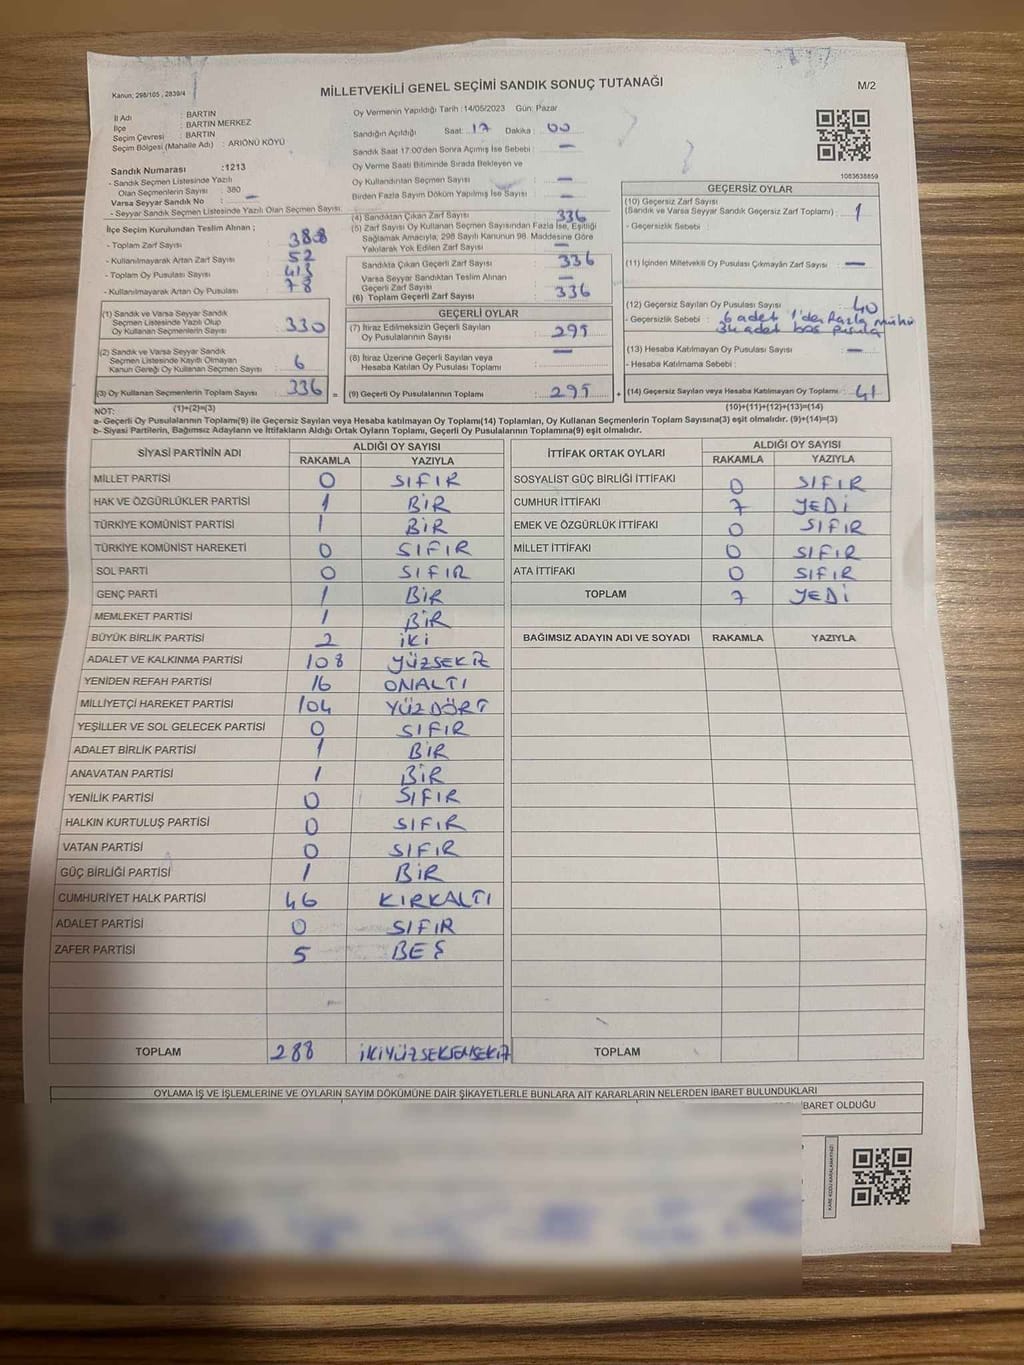 MİLLETVEKİLİ GENEL SEÇİMİ SANDIK SONUÇ TUTANAĞI
M/2
Kanun; 298/105 , 2839/4
İl Adı : BARTIN
İlçe : BARTIN MERKEZ
Seçim Çevresi : BARTIN
Seçim Bölgesi (Mahalle Adı) : ARIÖNÜ KÖYÜ
Sandık Numarası :1213
- Sandık Seçmen Listesinde Yazılı
Olan Seçmenlerin Sayısı : 380
Varsa Seyyar Sandık No : —
- Seyyar Sandık Seçmen Listesinde Yazılı Olan Seçmen Sayısı:
İlçe Seçim Kurulundan Teslim Alınan ;
- Toplam Zarf Sayısı : 388
- Kullanılmayarak Artan Zarf Sayısı : 52
- Toplam Oy Pusulası Sayısı : 413
- Kullanılmayarak Artan Oy Pusulası : 78
(1) Sandık ve Varsa Seyyar Sandık
Seçmen Listesinde Yazılı Olup
Oy Kullanan Seçmenlerin Sayısı : 330
(2) Sandık ve Varsa Seyyar Sandık
Seçmen Listesinde Kayıtlı Olmayan
Kanun Gereği Oy Kullanan Seçmen Sayısı : 6
(3) Oy Kullanan Seçmenlerin Toplam Sayısı : 336
(1)+(2)=(3)
Oy Vermenin Yapıldığı Tarih :14/05/2023 Gün: Pazar
Sandığın Açıldığı Saat: 17 Dakika : 00
Sandık Saat 17:00'den Sonra Açılmış İse Sebebi : —
Oy Verme Saati Bitiminde Sırada Bekleyen ve
Oy Kullandırılan Seçmen Sayısı : —
Birden Fazla Sayım Döküm Yapılmış İse Sayısı : —
(4) Sandıktan Çıkan Zarf Sayısı : 336
(5) Zarf Sayısı Oy Kullanan Seçmen Sayısından Fazla İse, Eşitliği
Sağlamak Amacıyla, 298 Sayılı Kanunun 98. Maddesine Göre
Yakılarak Yok Edilen Zarf Sayısı : —
Sandıkta Çıkan Geçerli Zarf Sayısı : 336
Varsa Seyyar Sandıktan Teslim Alınan
Geçerli Zarf Sayısı : —
(6) Toplam Geçerli Zarf Sayısı : 336
GEÇERLİ OYLAR
(7) İtiraz Edilmeksizin Geçerli Sayılan
Oy Pusulalarının Sayısı : 295
(8) İtiraz Üzerine Geçerli Sayılan veya
Hesaba Katılan Oy Pusulası Toplamı : —
= (9) Geçerli Oy Pusulalarının Toplamı : 295
1083638859
GEÇERSİZ OYLAR
(10) Geçersiz Zarf Sayısı
(Sandık ve Varsa Seyyar Sandık Geçersiz Zarf Toplamı) : 1
- Geçersizlik Sebebi :
(11) İçinden Milletvekili Oy Pusulası Çıkmayan Zarf Sayısı : —
(12) Geçersiz Sayılan Oy Pusulası Sayısı : 40
- Geçersizlik Sebebi : 6 adet 1'den fazla mühür
34 adet boş pusula
(13) Hesaba Katılmayan Oy Pusulası Sayısı : —
- Hesaba Katılmama Sebebi :
+ (14) Geçersiz Sayılan veya Hesaba Katılmayan Oy Toplamı : 41
(10)+(11)+(12)+(13)=(14)
NOT:
a- Geçerli Oy Pusulalarının Toplamı(9) ile Geçersiz Sayılan veya Hesaba katılmayan Oy Toplamı(14) Toplamları, Oy Kullanan Seçmenlerin Toplam Sayısına(3) eşit olmalıdır. (9)+(14)=(3)
b- Siyasi Partilerin, Bağımsız Adayların ve İttifakların Aldığı Ortak Oyların Toplamı, Geçerli Oy Pusulalarının Toplamına(9) eşit olmalıdır.
SİYASİ PARTİNİN ADI ALDIĞI OY SAYISI
RAKAMLA YAZIYLA
MİLLET PARTİSİ 0 SIFIR
HAK VE ÖZGÜRLÜKLER PARTİSİ 1 BİR
TÜRKİYE KOMÜNİST PARTİSİ 1 BİR
TÜRKİYE KOMÜNİST HAREKETİ 0 SIFIR
SOL PARTİ 0 SIFIR
GENÇ PARTİ 1 BİR
MEMLEKET PARTİSİ 1 BİR
BÜYÜK BİRLİK PARTİSİ 2 İKİ
ADALET VE KALKINMA PARTİSİ 108 YÜZSEKİZ
YENİDEN REFAH PARTİSİ 16 ONALTI
MİLLİYETÇİ HAREKET PARTİSİ 104 YÜZDÖRT
YEŞİLLER VE SOL GELECEK PARTİSİ 0 SIFIR
ADALET BİRLİK PARTİSİ 1 BİR
ANAVATAN PARTİSİ 1 BİR
YENİLİK PARTİSİ 0 SIFIR
HALKIN KURTULUŞ PARTİSİ 0 SIFIR
VATAN PARTİSİ 0 SIFIR
GÜÇ BİRLİĞİ PARTİSİ 1 BİR
CUMHURİYET HALK PARTİSİ 46 KIRKALTI
ADALET PARTİSİ 0 SIFIR
ZAFER PARTİSİ 5 BEŞ
TOPLAM 288 İKİYÜZSEKSENSEKİZ
İTTİFAK ORTAK OYLARI ALDIĞI OY SAYISI
RAKAMLA YAZIYLA
SOSYALİST GÜÇ BİRLİĞİ İTTİFAKI 0 SIFIR
CUMHUR İTTİFAKI 7 YEDİ
EMEK VE ÖZGÜRLÜK İTTİFAKI 0 SIFIR
MİLLET İTTİFAKI 0 SIFIR
ATA İTTİFAKI 0 SIFIR
TOPLAM 7 YEDİ
BAĞIMSIZ ADAYIN ADI VE SOYADI RAKAMLA YAZIYLA
TOPLAM
OYLAMA İŞ VE İŞLEMLERİNE VE OYLARIN SAYIM DÖKÜMÜNE DAİR ŞİKAYETLERLE BUNLARA AİT KARARLARIN NELERDEN İBARET BULUNDUKLARI
İBARET OLDUĞU
KARE KODU KARALAMAYINIZ!